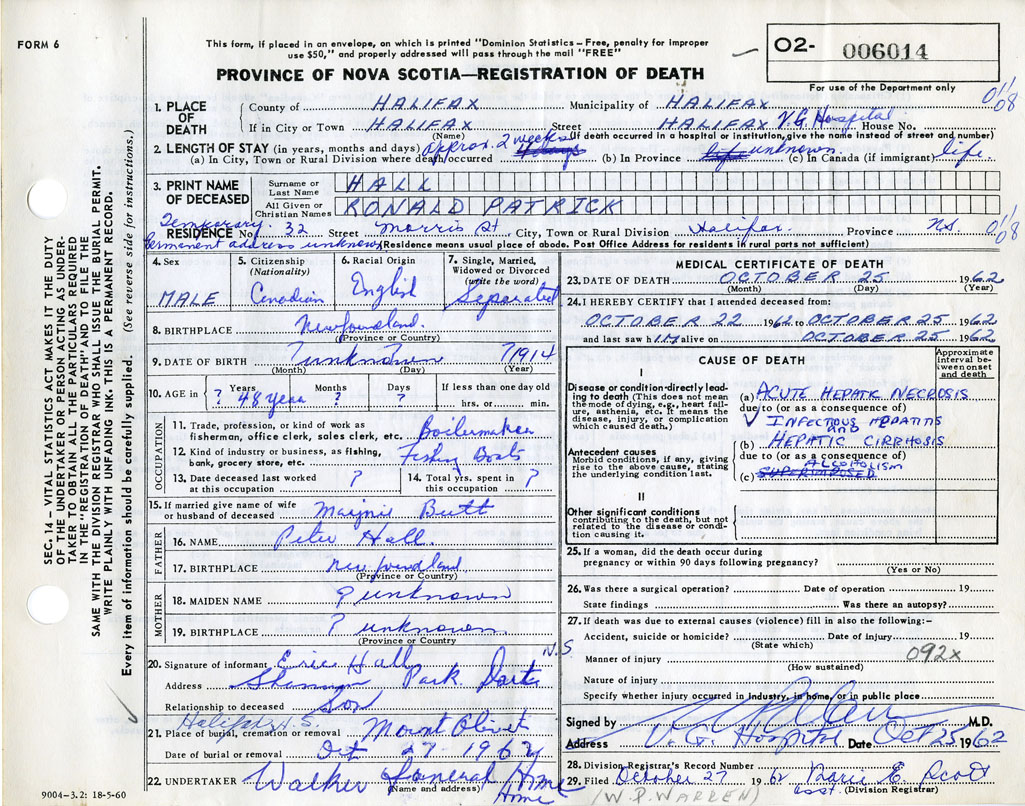 FORM 6
This form, if placed in an envelope, on which is printed "Dominion Statistics – Free, penalty for improper
use $50," and properly addressed will pass through the mail "FREE"
PROVINCE OF NOVA SCOTIA—REGISTRATION OF DEATH
O2- 006014
For use of the Department only
1. PLACE OF DEATH
County of HALIFAX Municipality of HALIFAX
If in City or Town HALIFAX Street HALIFAX V.G. Hospital House No.
(Name) (If death occurred in a hospital or institution, give name instead of street and number)
2. LENGTH OF STAY (in years, months and days) approx. 2 weeks
(a) In City, Town or Rural Division where death occurred (b) In Province life unknown (c) In Canada (if immigrant) life
3. PRINT NAME OF DECEASED
Surname or Last Name HALL
All Given or Christian Names RONALD PATRICK
Temporary
RESIDENCE No. 32 Street Morris St City, Town or Rural Division Halifax Province N.S
Permanent address unknown (Residence means usual place of abode. Post Office Address for residents in rural parts not sufficient)
01/08
01/08
4. Sex MALE
5. Citizenship (Nationality) Canadian
6. Racial Origin English
7. Single, Married, Widowed or Divorced (write the word) Separated
8. BIRTHPLACE Newfoundland.
(Province or Country)
9. DATE OF BIRTH unknown ?1914
(Month) (Day) (Year)
10. AGE in Years Months Days If less than one day old
? 48 years ? ? hrs. or min.
OCCUPATION
11. Trade, profession, or kind of work as
fisherman, office clerk, sales clerk, etc. Boilermaker
12. Kind of industry or business, as fishing,
bank, grocery store, etc. Fishing Boats
13. Date deceased last worked at this occupation ? 14. Total yrs. spent in this occupation ?
15. If married give name of wife
or husband of deceased Marjorie Butt
FATHER
16. NAME Peter Hall
17. BIRTHPLACE Newfoundland
(Province or Country)
MOTHER
18. MAIDEN NAME ? unknown
19. BIRTHPLACE ? unknown.
(Province or Country
20. Signature of informant Eric Hall
Address Shannon Park Dart. N.S.
Relationship to deceased Son
Halifax N.S.
21. Place of burial, cremation or removal Mount Olivet
Date of burial or removal Oct 27 - 1962
22. UNDERTAKER Walker Funeral Home
(Name and address) Home
9004-3.2: 18-5-60
MEDICAL CERTIFICATE OF DEATH
23. DATE OF DEATH OCTOBER 25 1962
(Month) (Day) (Year)
24. I HEREBY CERTIFY that I attended deceased from:
OCTOBER 22 1962 to OCTOBER 25 1962
and last saw h IM alive on OCTOBER 25 1962
CAUSE OF DEATH
Approximate interval between onset and death
I
Disease or condition directly leading to death (This does not mean the mode of dying, e.g., heart failure, asthenia, etc. It means the disease, injury, or complication which caused death.)
(a) ACUTE HEPATIC NECROSIS
due to (or as a consequence of)
✓ INFECTIOUS HEPATITIS
AND
(b) HEPATIC CIRRHOSIS
due to (or as a consequence of)
ALCOHOLISM
(c) SUPERIMPOSED
Antecedent causes
Morbid conditions, if any, giving rise to the above cause, stating the underlying condition last.
II
Other significant conditions
contributing to the death, but not related to the disease or condition causing it.
25. If a woman, did the death occur during
pregnancy or within 90 days following pregnancy?
(Yes or No)
26. Was there a surgical operation? Date of operation 19
State findings Was there an autopsy?
27. If death was due to external causes (violence) fill in also the following:–
Accident, suicide or homicide? Date of injury 19
(State which)
Manner of injury 092x
(How sustained)
Nature of injury
Specify whether injury occurred in industry, in home, or in public place
Signed by M.D.
Address V.G. Hospital Date Oct 25 1962
28. Division Registrar's Record Number
29. Filed October 27 1962 Marie E. Scott
(W.P. WARREN) asst. (Division Registrar)
SEC. 14 – VITAL STATISTICS ACT MAKES IT THE DUTY
OF THE UNDERTAKER OR PERSON ACTING AS UNDER-
TAKER TO OBTAIN ALL THE PARTICULARS REQUIRED
IN THE "REGISTRATION OF DEATH" AND TO FILE THE
SAME WITH THE DIVISION REGISTRAR WHO SHALL ISSUE THE BURIAL PERMIT.
WRITE PLAINLY WITH UNFADING INK. THIS IS A PERMANENT RECORD.
Every item of information should be carefully supplied. (See reverse side for instructions.)